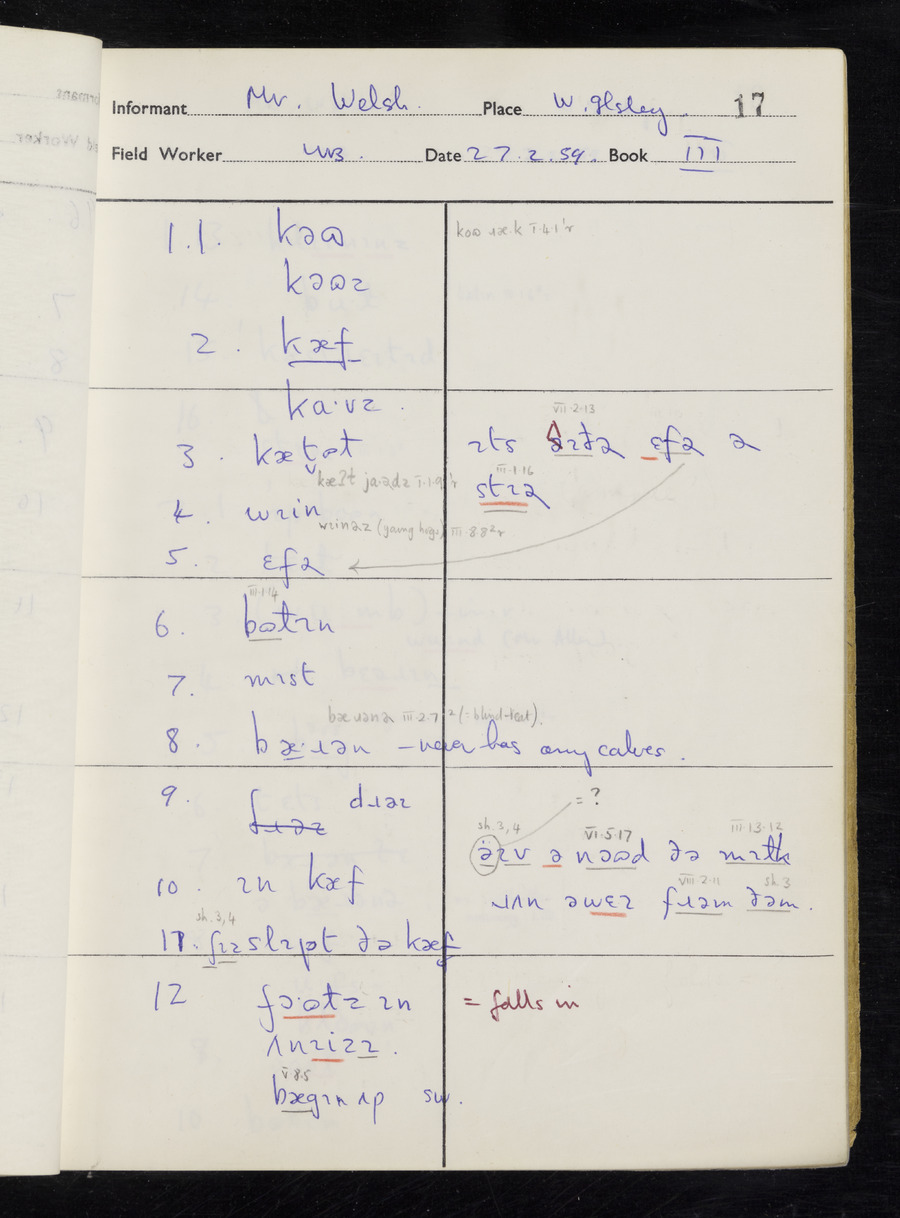 Informant Mr. Welsh. Place W. Ilsley. 17
Field Worker WB. Date 27.2.59. Book III
1.1. kəɷ
kəɷz
kəɷ ɹæ·k I·4·1'r
2. kæf
ka·vz.
3. kætət
ɪts ðɪðə ɛfə ə
VII·2·13
stɪə
III·1·16
kæʔt ja·ədz I·1·9'r
4. wɪin
wɪinəz (young hogs) III·8·8²r
5. ɛfə
6. bətɪn
III·1·14
7. mɪst
bæɹənə III·2·7 (=blind-teat).
8. bæ·ɹən – never has any calves.
9. dɹəɪ
= ?
sh. 3, 4 VI·5·17 III·13·12
əɪv ə nəɷd ðə mɪtk
10. ɪn kæf
VIII·2·11 sh. 3
ɹʌn əwɛɪ fɹəm ðəm.
sh. 3, 4
11. ʃɪz slɪpt ðə kæf
12 fɔ·ɷtz ɪn
= falls in
ʌnɪizɪ.
V·8·5
bægɪn ʌp sw.